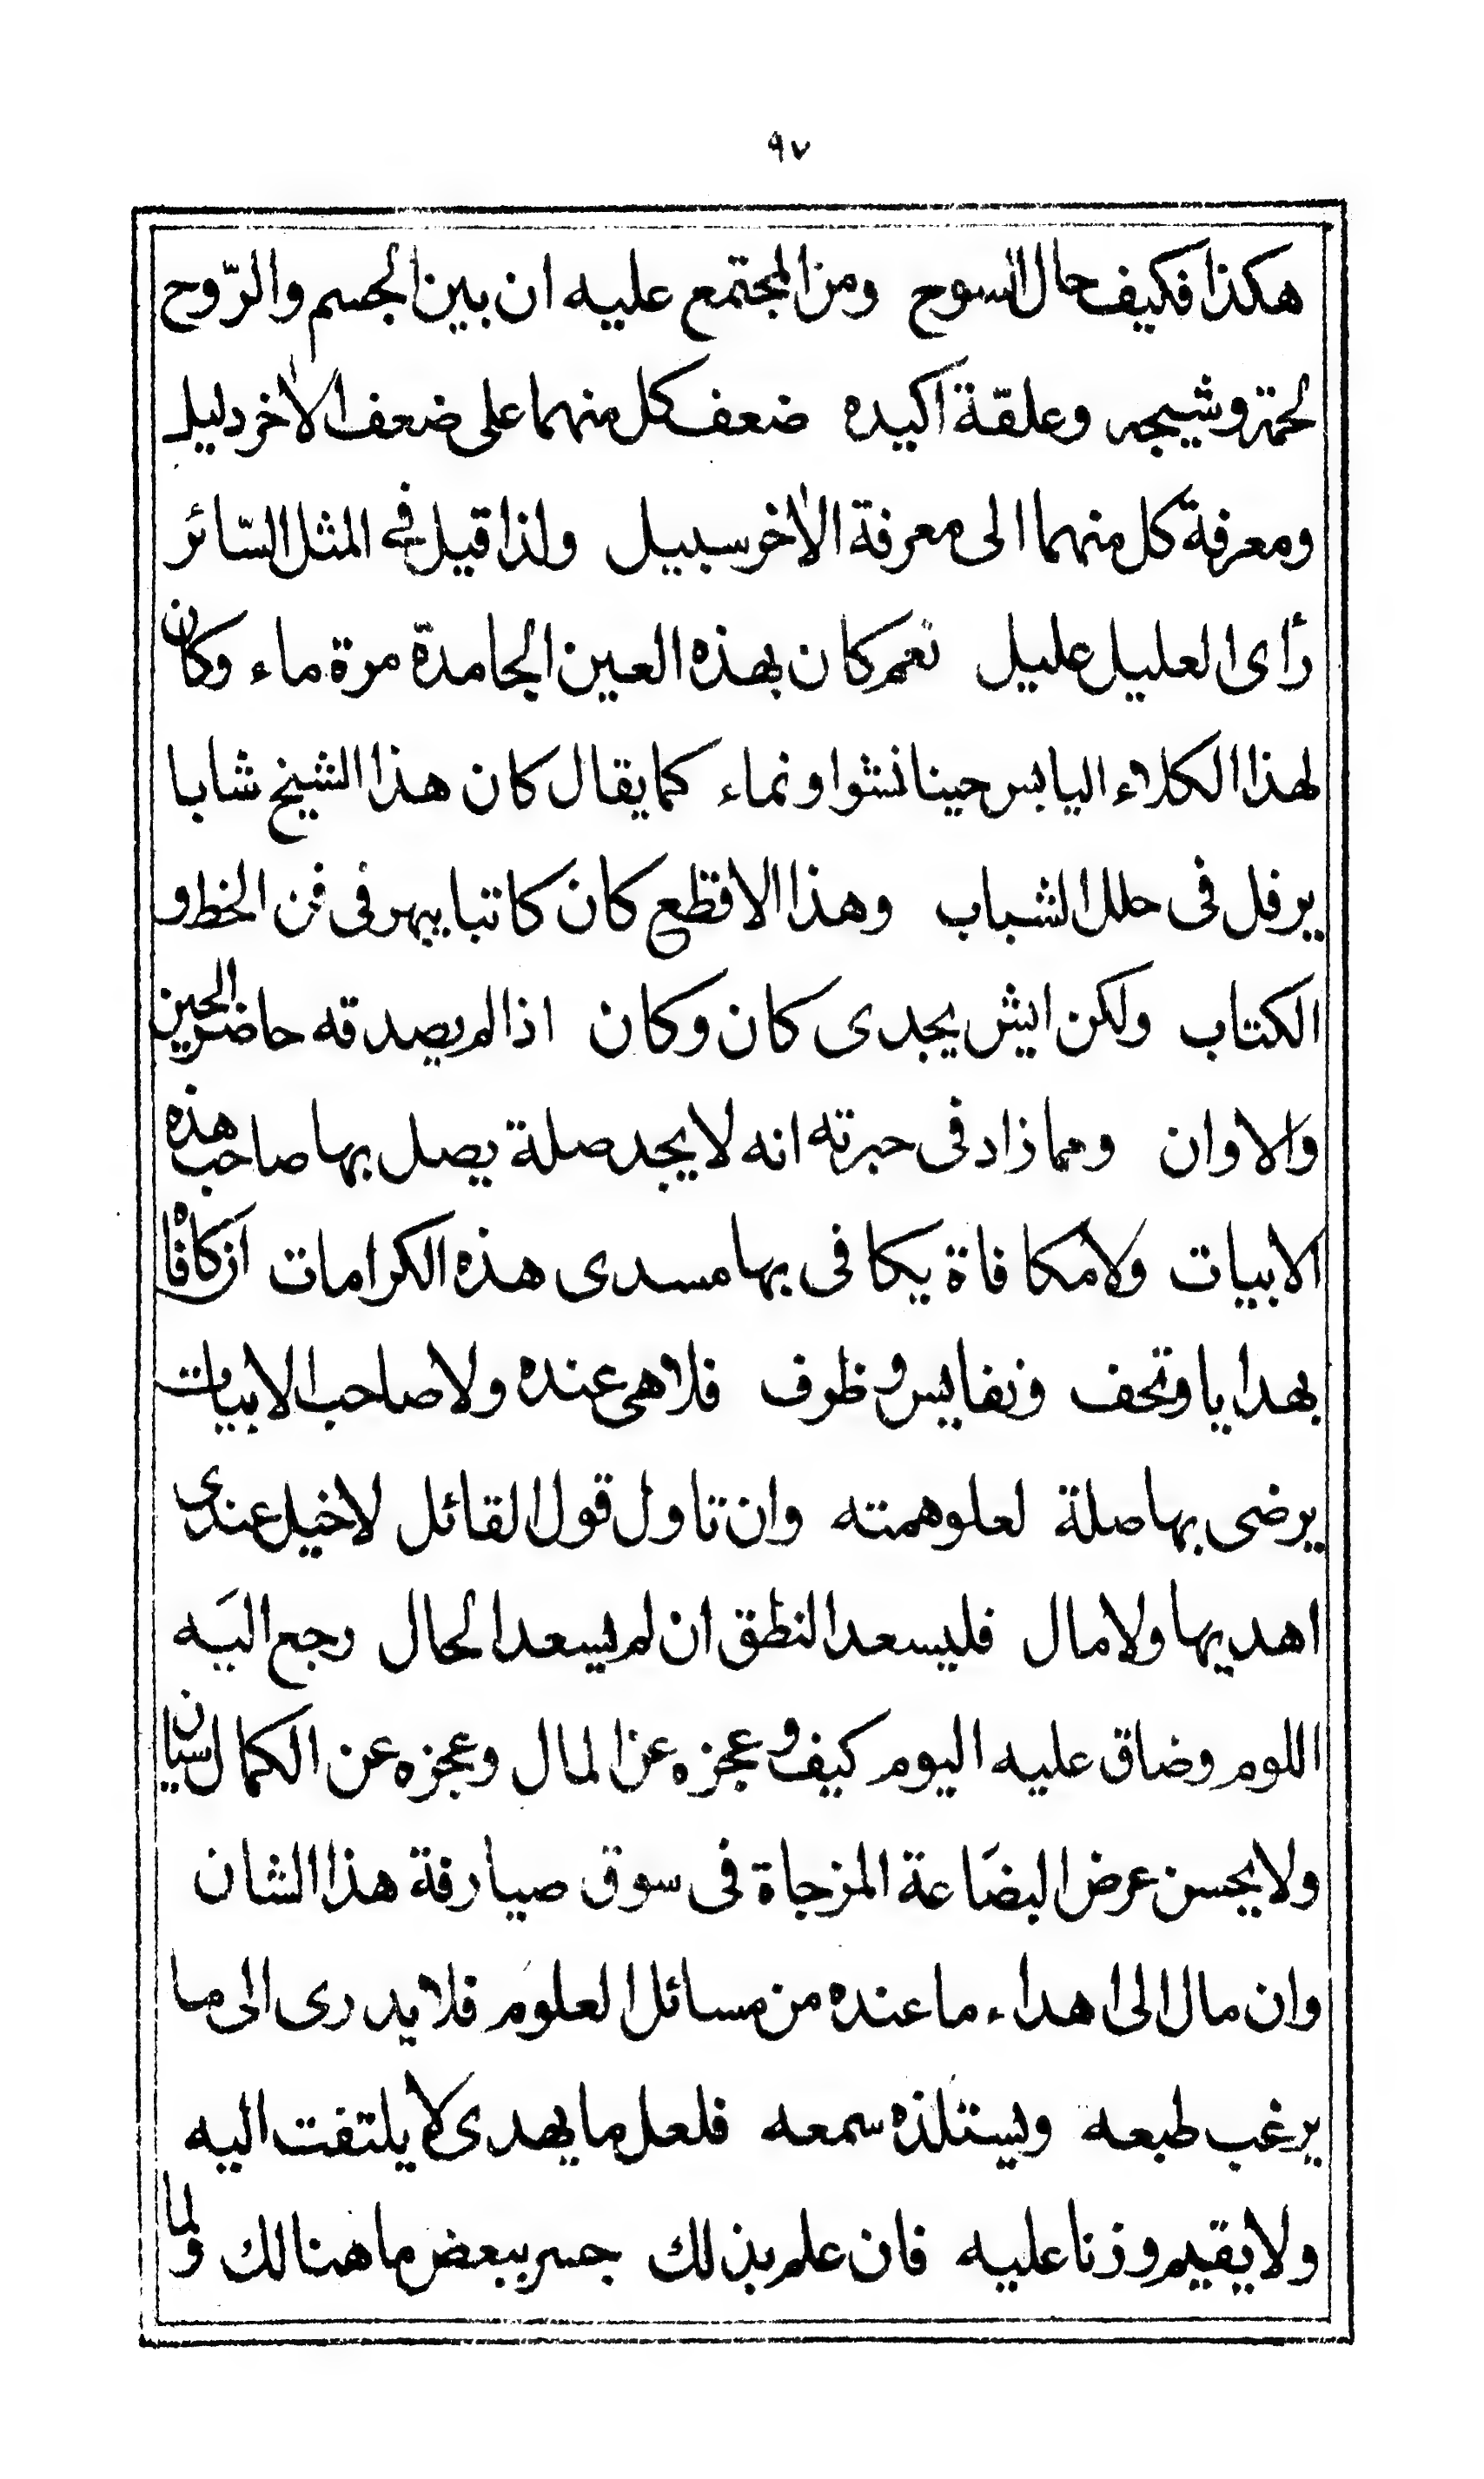 ٩٧
هكذا فكيف حال السوح ومن المجتمع عليه ان بين الجسم والرّوح
لحمة وشيجه وعلقة اكيده ضعف كل منهما على ضعف الاٰخر دليل
ومعرفة كل منهما الى معرفة الاٰخر سبيل ولذا قيل في المثل السّائر
رأى العليل عليل نعم كان بهذه العين الجامدة مرة ماء وكان
لهذا الكلاء اليابس حينا نشوا ونماء كما يقال كان هذا الشيخ شابا
يرفل فى حلل الشباب وهذا الاقطع كان كاتبا يبهر فى فن الخط و
الكتاب ولكن ايش يجدى كان وكان اذا لم يصدقه حاضر الحين
والاوان ومما زاد فى حيرته انه لا يجد صلة يصل بها صاحب هذه
الابيات ولا مكافاة يكافى بها مسدى هذه الكرامات ان كافاه
بهدايا وتحف ونفايس وظرف فلا هى عنده ولا صاحب الابيات
يرضى بها صلة لعلو همته وان تاول قول القائل لا خيل عندى
اهديها ولا مال فليسعد النطق ان لم يسعد الحال رجع اليه
اللوم وضاق عليه اليوم كيف وعجزه عن المال وعجزه عن الكمال سيان
ولا يحسن عرض البضاعة المزجاة فى سوق صيارفة هذا الشان
وان مال الى اهداء ما عنده من مسائل العلوم فلا يدرى الى ما
يرغب طبعه ويستلذه سمعه فلعل ما يهدى لا يلتفت اليه
ولا يقيم وزنا عليه فان علم بذلك جسر ببعض ما هنالك ولما